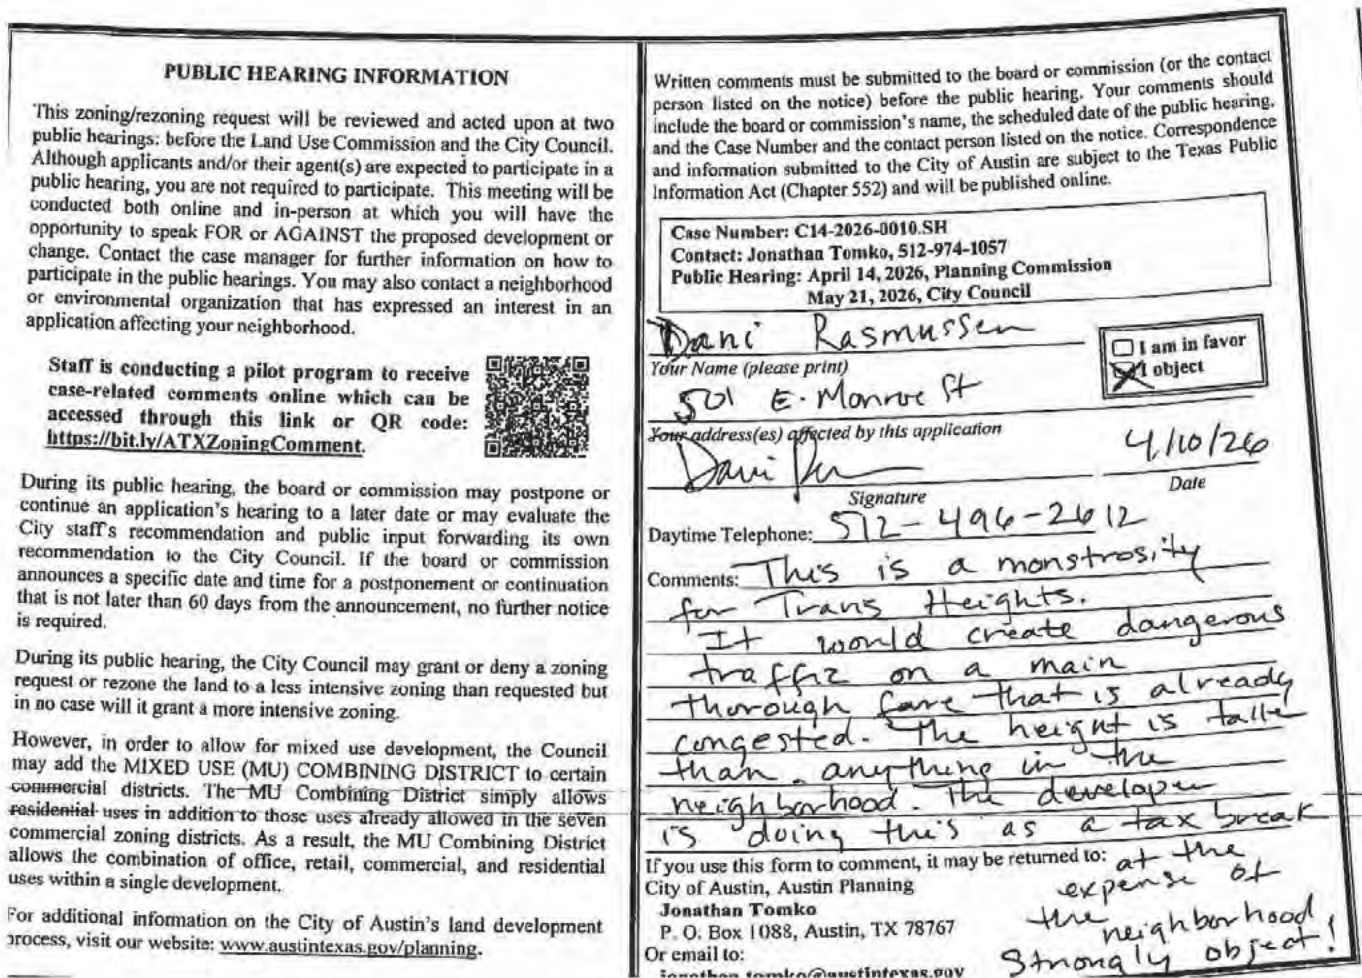 PUBLIC HEARING INFORMATION
This zoning/rezoning request will be reviewed and acted upon at two
public hearings: before the Land Use Commission and the City Council.
Although applicants and/or their agent(s) are expected to participate in a
public hearing, you are not required to participate. This meeting will be
conducted both online and in-person at which you will have the
opportunity to speak FOR or AGAINST the proposed development or
change. Contact the case manager for further information on how to
participate in the public hearings. You may also contact a neighborhood
or environmental organization that has expressed an interest in an
application affecting your neighborhood.
Staff is conducting a pilot program to receive
case-related comments online which can be
accessed through this link or QR code:
https://bit.ly/ATXZoningComment.
During its public hearing, the board or commission may postpone or
continue an application's hearing to a later date or may evaluate the
City staff's recommendation and public input forwarding its own
recommendation to the City Council. If the board or commission
announces a specific date and time for a postponement or continuation
that is not later than 60 days from the announcement, no further notice
is required.
During its public hearing, the City Council may grant or deny a zoning
request or rezone the land to a less intensive zoning than requested but
in no case will it grant a more intensive zoning.
However, in order to allow for mixed use development, the Council
may add the MIXED USE (MU) COMBINING DISTRICT to certain
commercial districts. The MU Combining District simply allows
residential uses in addition to those uses already allowed in the seven
commercial zoning districts. As a result, the MU Combining District
allows the combination of office, retail, commercial, and residential
uses within a single development.
For additional information on the City of Austin's land development
process, visit our website: www.austintexas.gov/planning.
Written comments must be submitted to the board or commission (or the contact
person listed on the notice) before the public hearing. Your comments should
include the board or commission's name, the scheduled date of the public hearing,
and the Case Number and the contact person listed on the notice. Correspondence
and information submitted to the City of Austin are subject to the Texas Public
Information Act (Chapter 552) and will be published online.
Case Number: C14-2026-0010.SH
Contact: Jonathan Tomko, 512-974-1057
Public Hearing: April 14, 2026, Planning Commission
May 21, 2026, City Council
Dani Rasmussen
Your Name (please print)
I am in favor
I object
501 E. Monroe St
Your address(es) affected by this application
Dani
4/10/26
Signature
Date
Daytime Telephone: 512-496-2612
Comments: This is a monstrosity
for Travis Heights.
It would create dangerous
traffic on a main
thorough fare that is already
congested. The height is taller
than anything in the
neighborhood. The developer
is doing this as a tax break
at the
expense of
the neighborhood
Strongly object!
If you use this form to comment, it may be returned to:
City of Austin, Austin Planning
Jonathan Tomko
P. O. Box 1088, Austin, TX 78767
Or email to:
jonathan.tomko@austintexas.gov